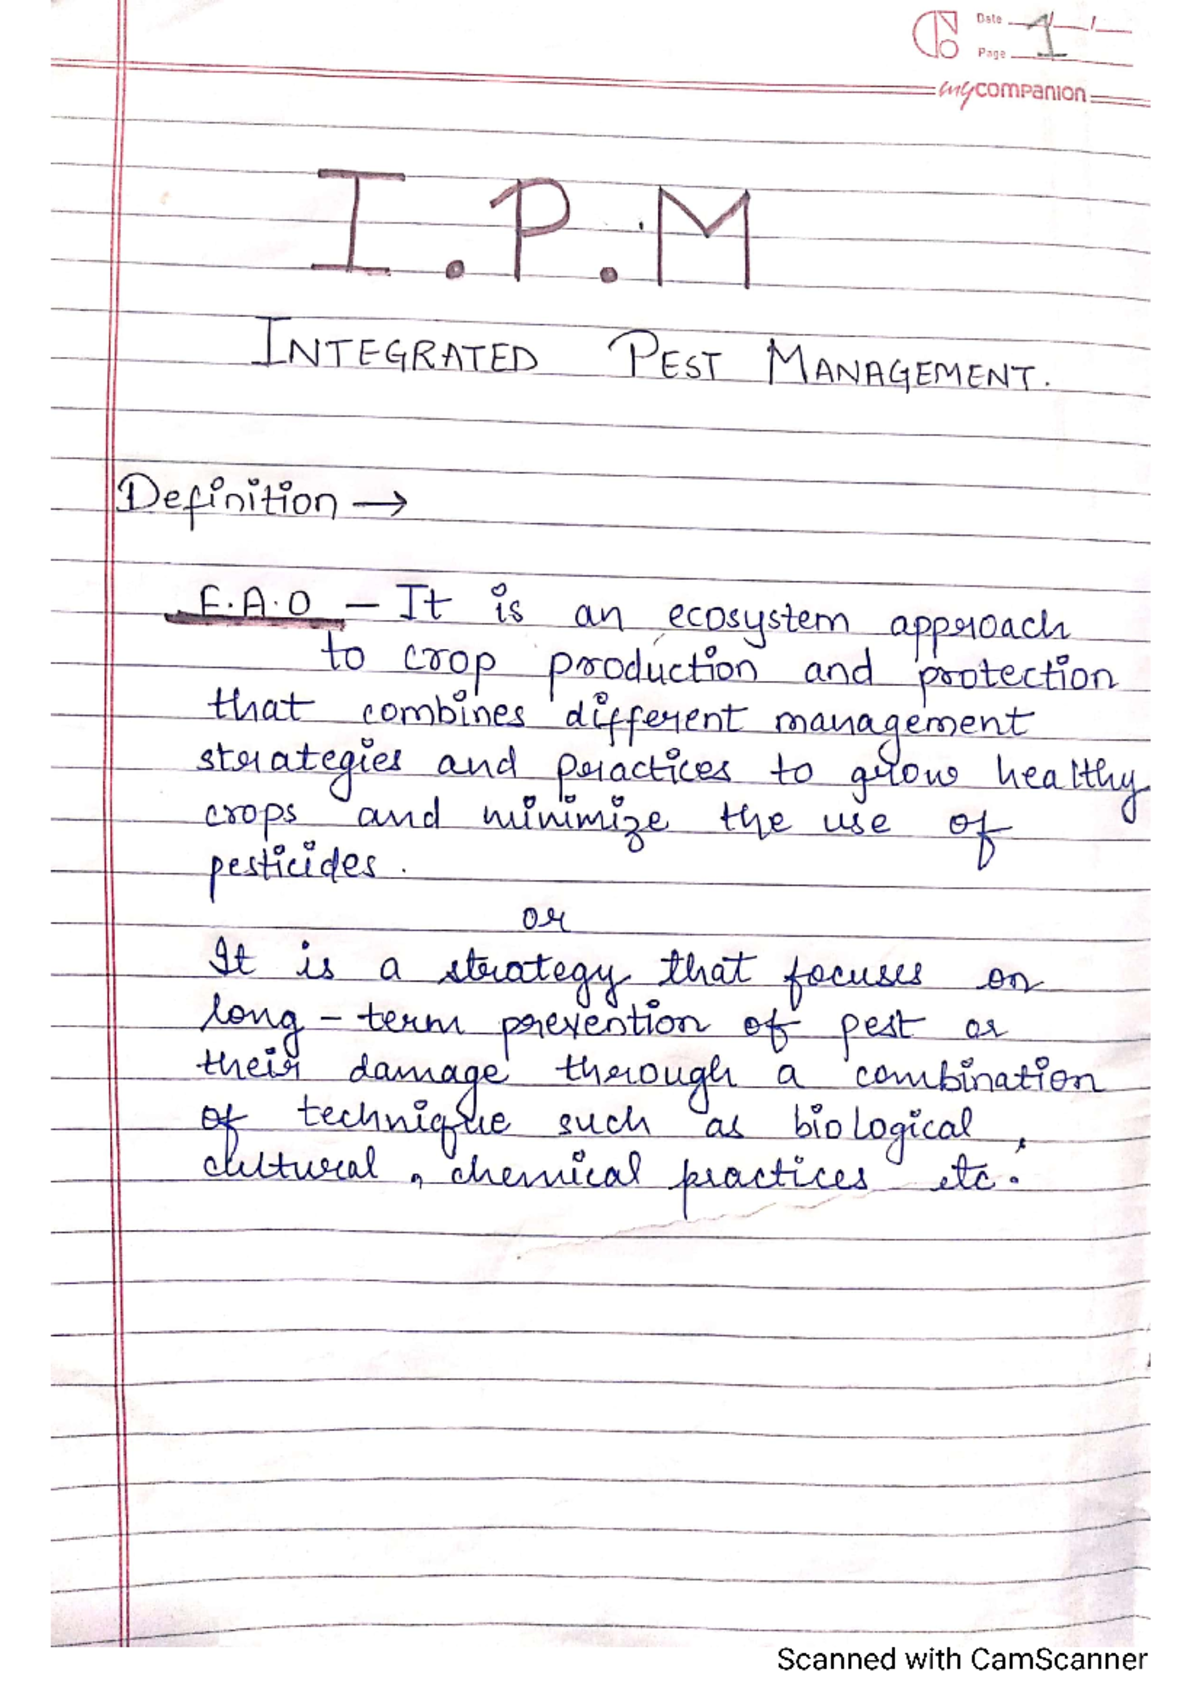 Date 1
Page
mycompanion
I.P.M
INTEGRATED PEST MANAGEMENT.
Definition →
F.A.O – It is an ecosystem approach
to crop production and protection
that combines different management
strategies and practices to grow healthy
crops and minimize the use of
pesticides.
or
It is a strategy that focuses on
long-term prevention of pest or
their damage through a combination
of technique such as biological,
cultural, chemical practices etc.
Scanned with CamScanner